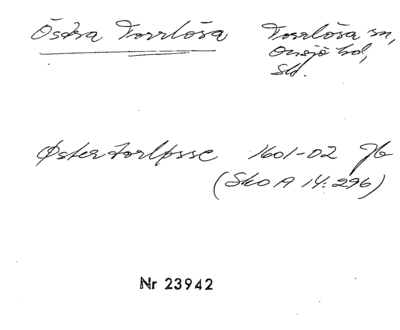 Östra Torrlösa Torrlösa sn,
Onsjö hd,
Sk.
Østertorløsse 1601-02 Jb
(Sko A 14:296)
Nr 23942